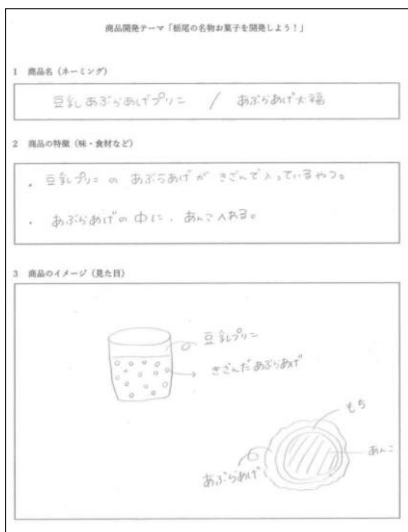 商品開発テーマ「栃尾の名物お菓子を開発しよう！」
1 商品名（ネーミング）
豆乳あぶらあげプリン / あぶらあげ大福
2 商品の特徴（味・食材など）
・豆乳プリンの あぶらあげが きざんで入っているやつ。
・あぶらあげの中に、あんこ入れる。
3 商品のイメージ（見た目）
豆乳プリン
きざんだあぶらあげ
もち
あんこ
あぶらあげ